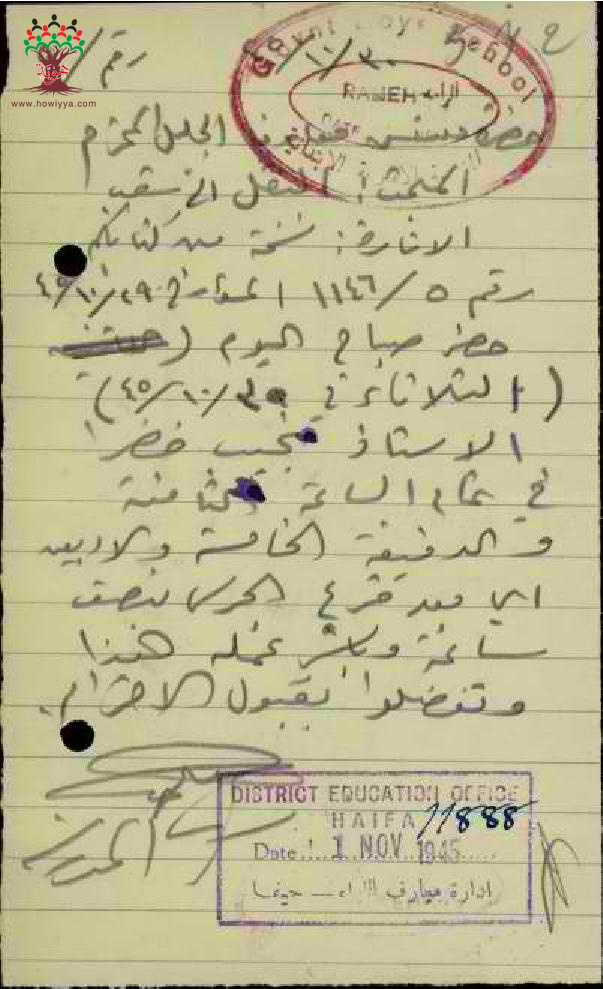 www.howiyya.com
Govnt Boys School
N 2
رقم /
٣٠/١٠/
RAMEH الرامة
حضرة مفتش معارف الجليل المحترم
الاشارة: نسخة من كتابكم
رقم ٥/١١٤٦ المؤرخ ٢٩/١٠/٤٥
حضر صباح اليوم (
(الثلاثاء في ٣٠/١٠/٤٥)
الاستاذ نجيب خضرا
في تمام الساعة الثامنة
والدقيقة الخامسة والاربعين
اي بعد قرع الجرس بنصف
ساعة وباشر عمله هذا
وتفضلوا بقبول الاحترام.
المدير
DISTRICT EDUCATION OFFICE
HAIFA 11888
Date 1 NOV 1945
ادارة معارف اللواء — حيفا